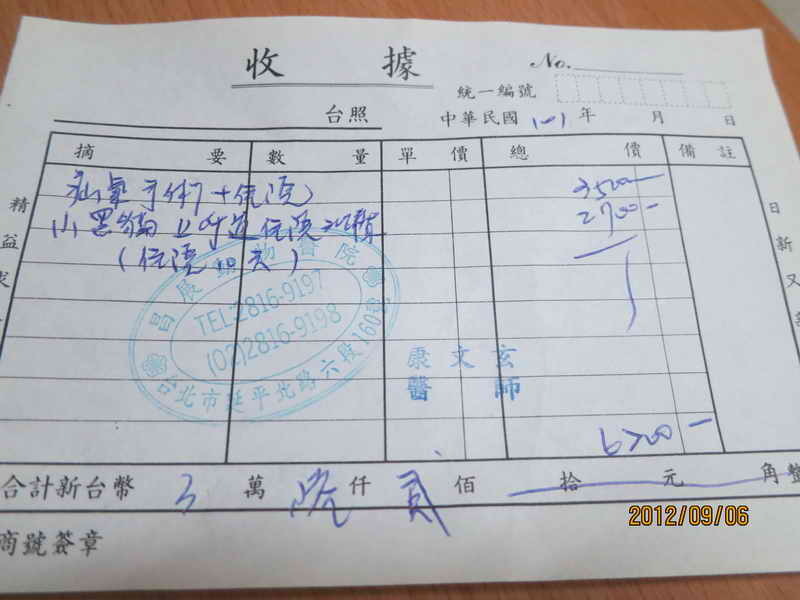 收 據
No.
統一編號
台照
中華民國 101 年 月 日
摘 要 數 量 單 價 總 價 備 註
疝氣手術+住院 3500-
小黑貓上呼道住院 2700-
(住院10天)
昌展動物醫院
TEL:2816-9197
(02)2816-9198
台北市延平北路六段160號
康文玄
醫師
6200-
合計新台幣 萬 陸 仟 貳 佰 拾 元 角整
商號簽章
精益求
日新又
2012/09/06